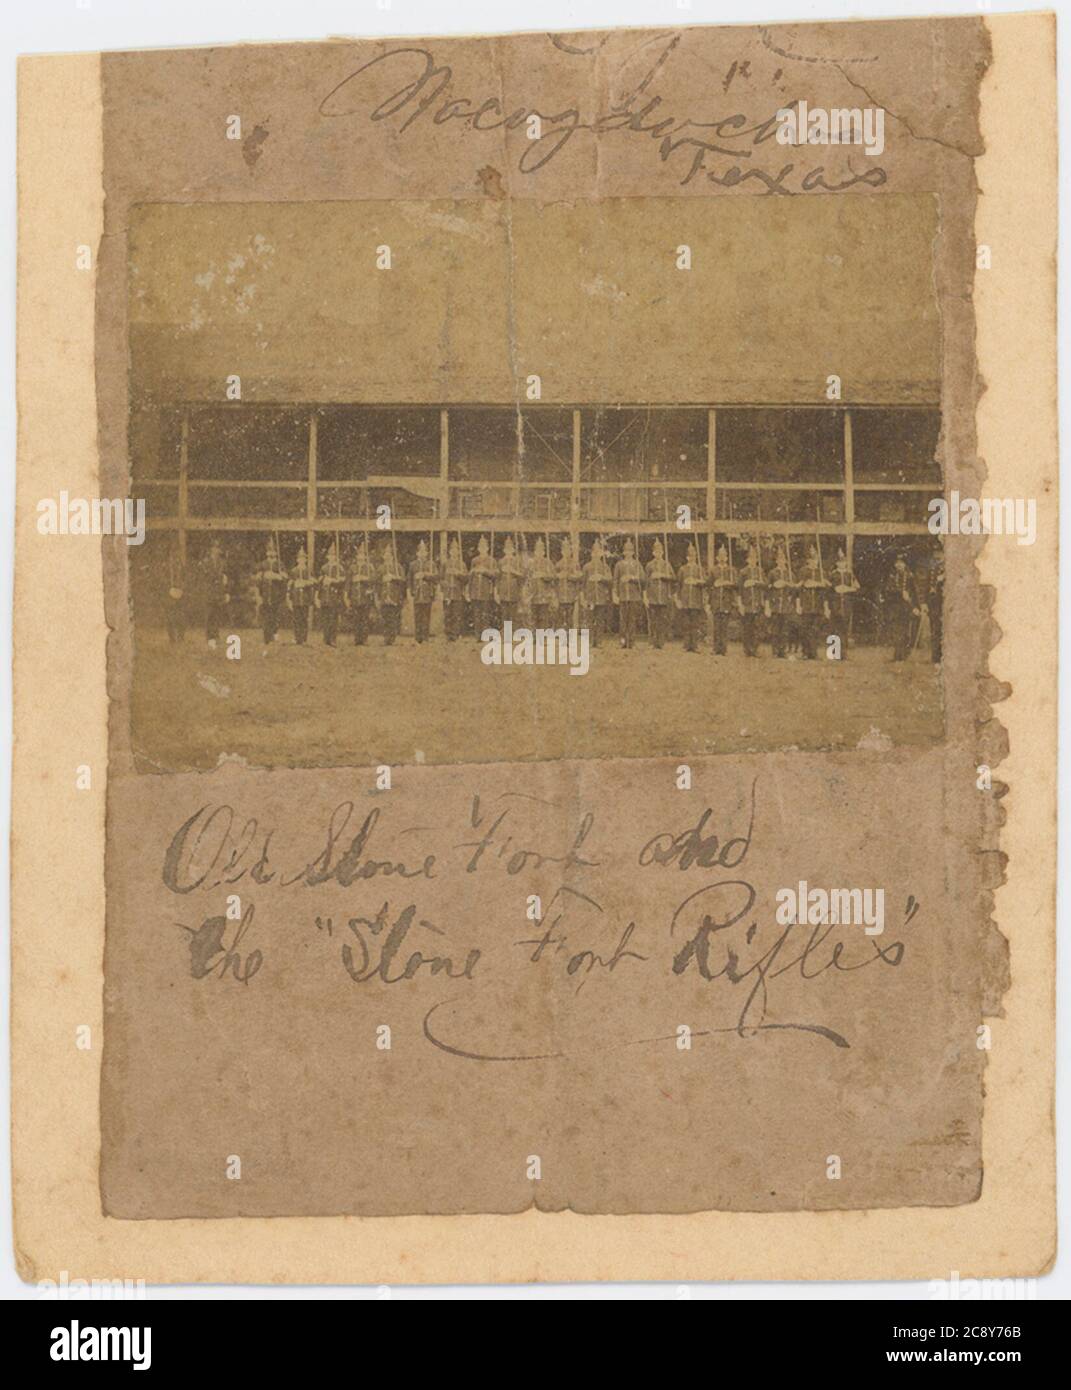 Nacogdoches
Texas
Old Stone Fort and
the "Stone Fort Rifles"
alamy
Image ID: 2C8Y76B
www.alamy.com